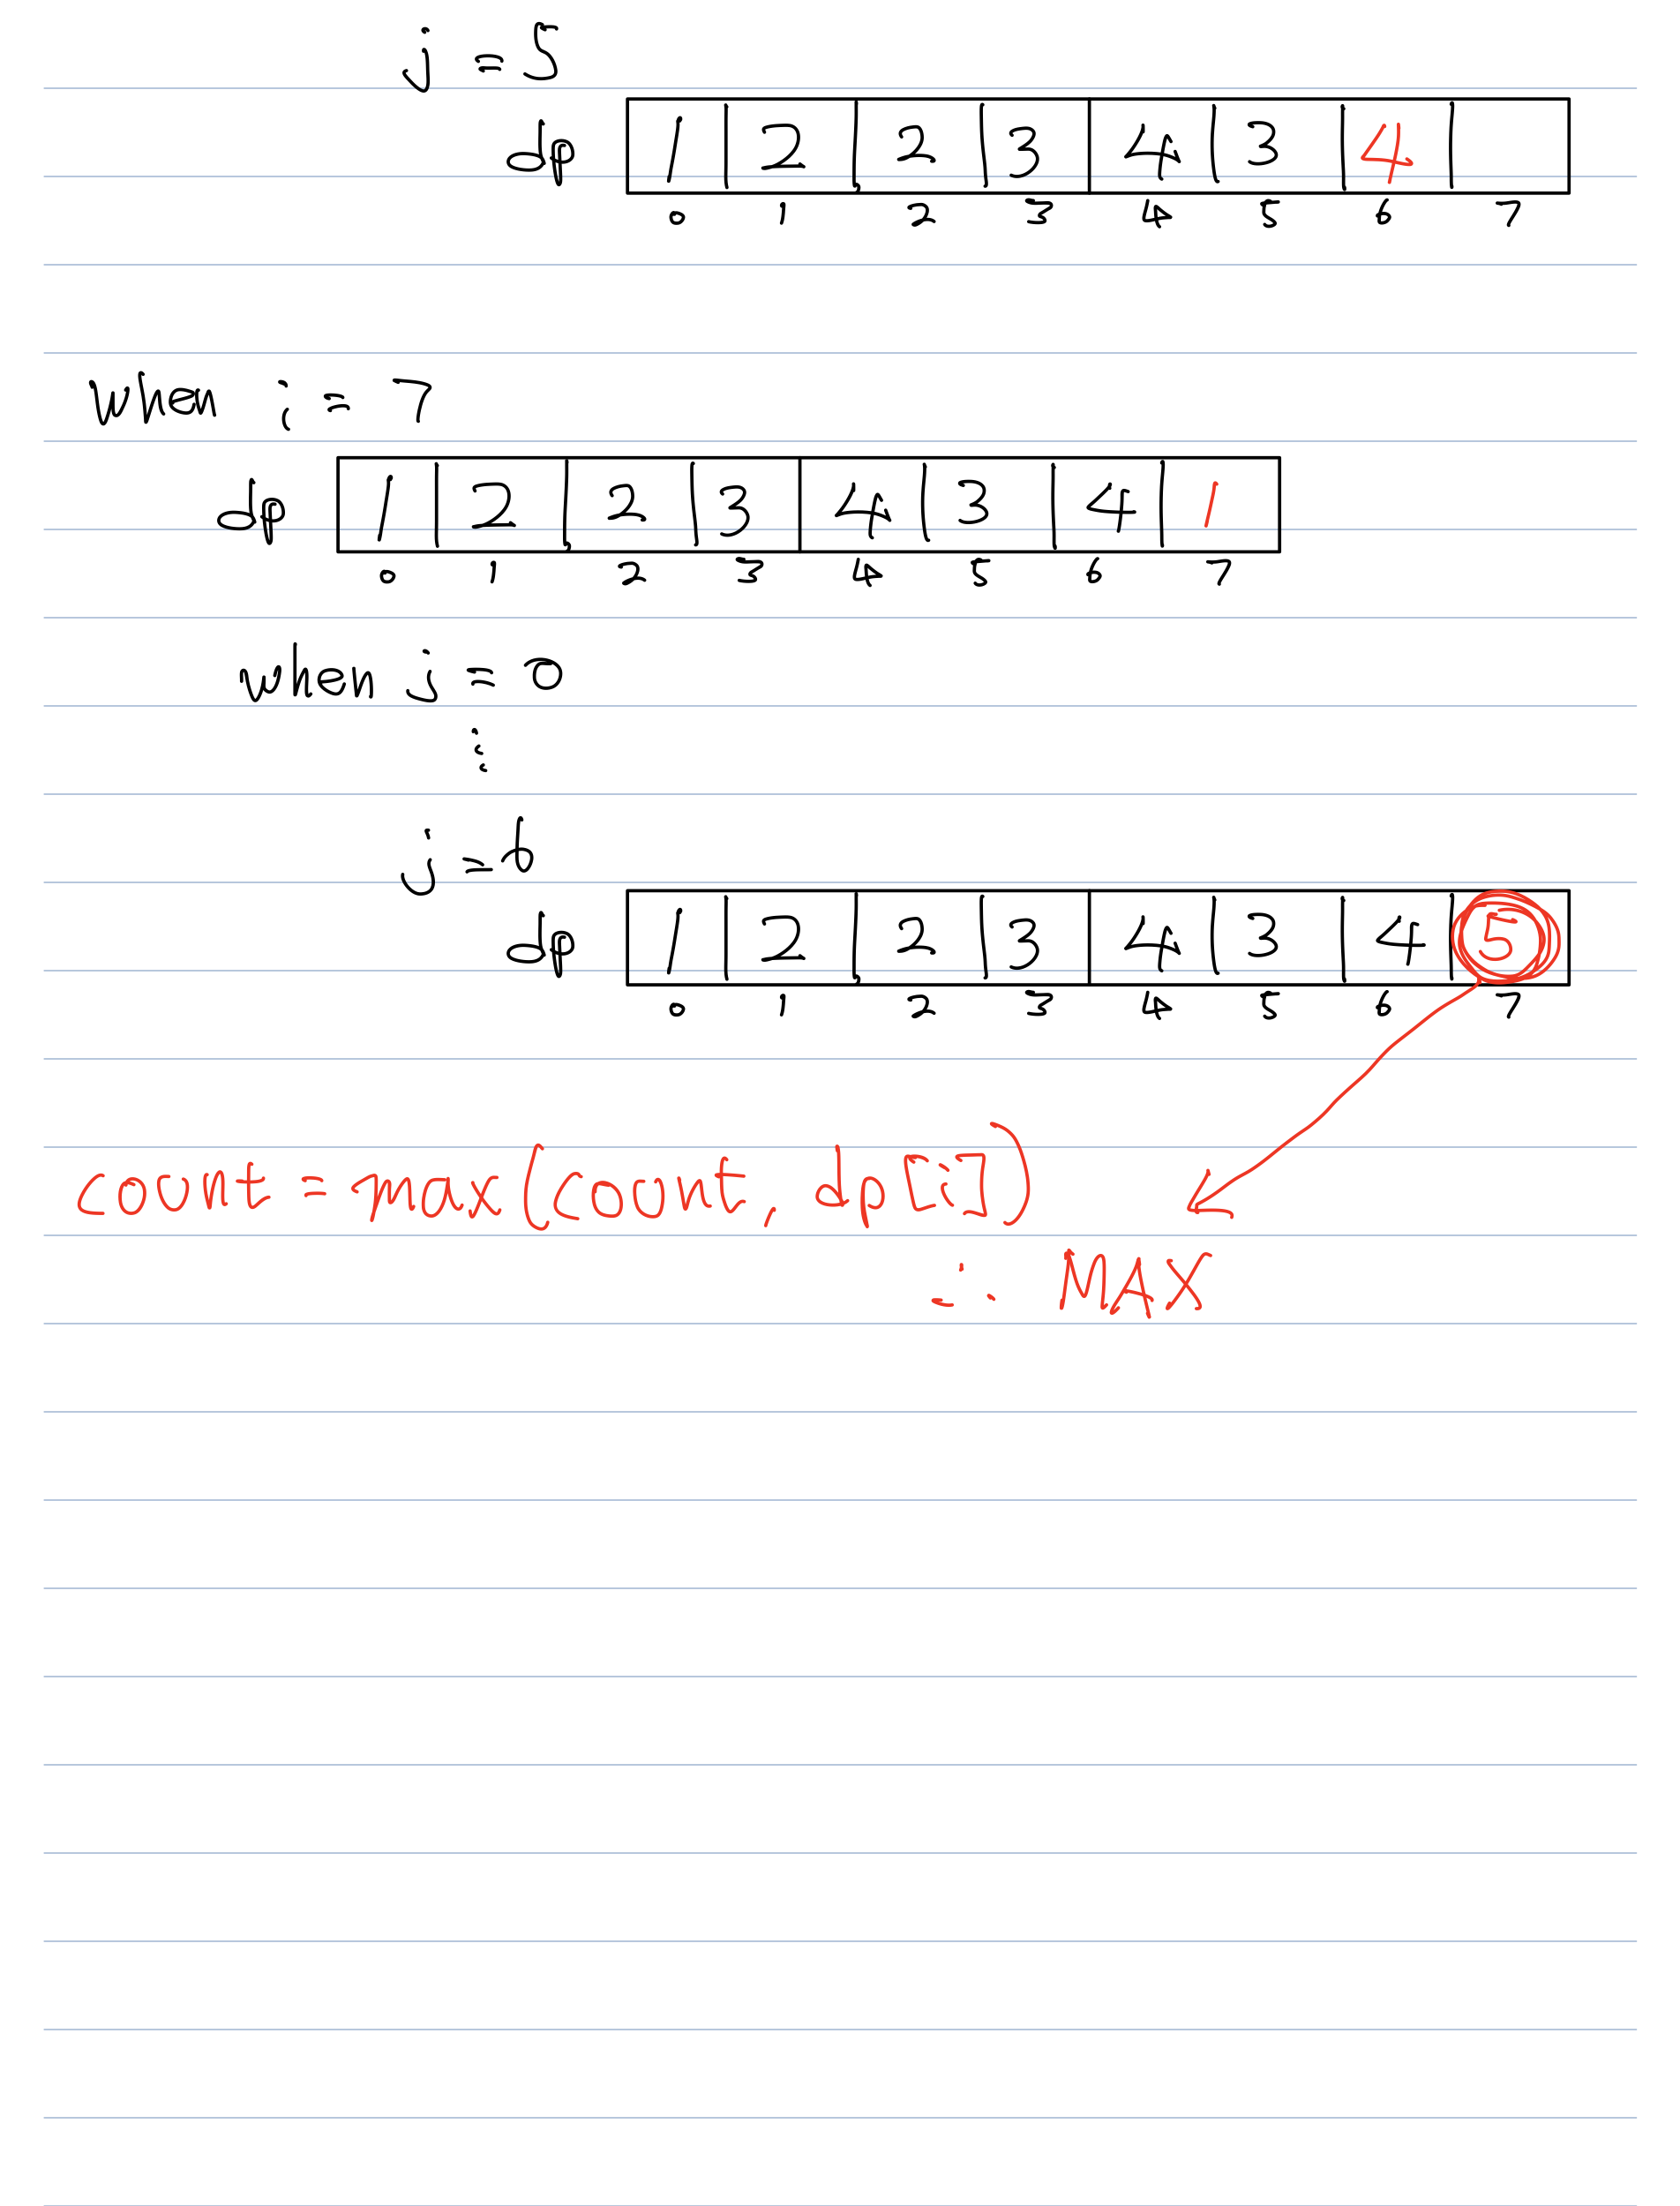 j = 5
dp 1 2 2 3 4 3 4
0 1 2 3 4 5 6 7
When i = 7
dp 1 2 2 3 4 3 4 1
0 1 2 3 4 5 6 7
when j = 0
⋮
j = 6
dp 1 2 2 3 4 3 4 5
0 1 2 3 4 5 6 7
count = max(count, dp[i])
∴ MAX